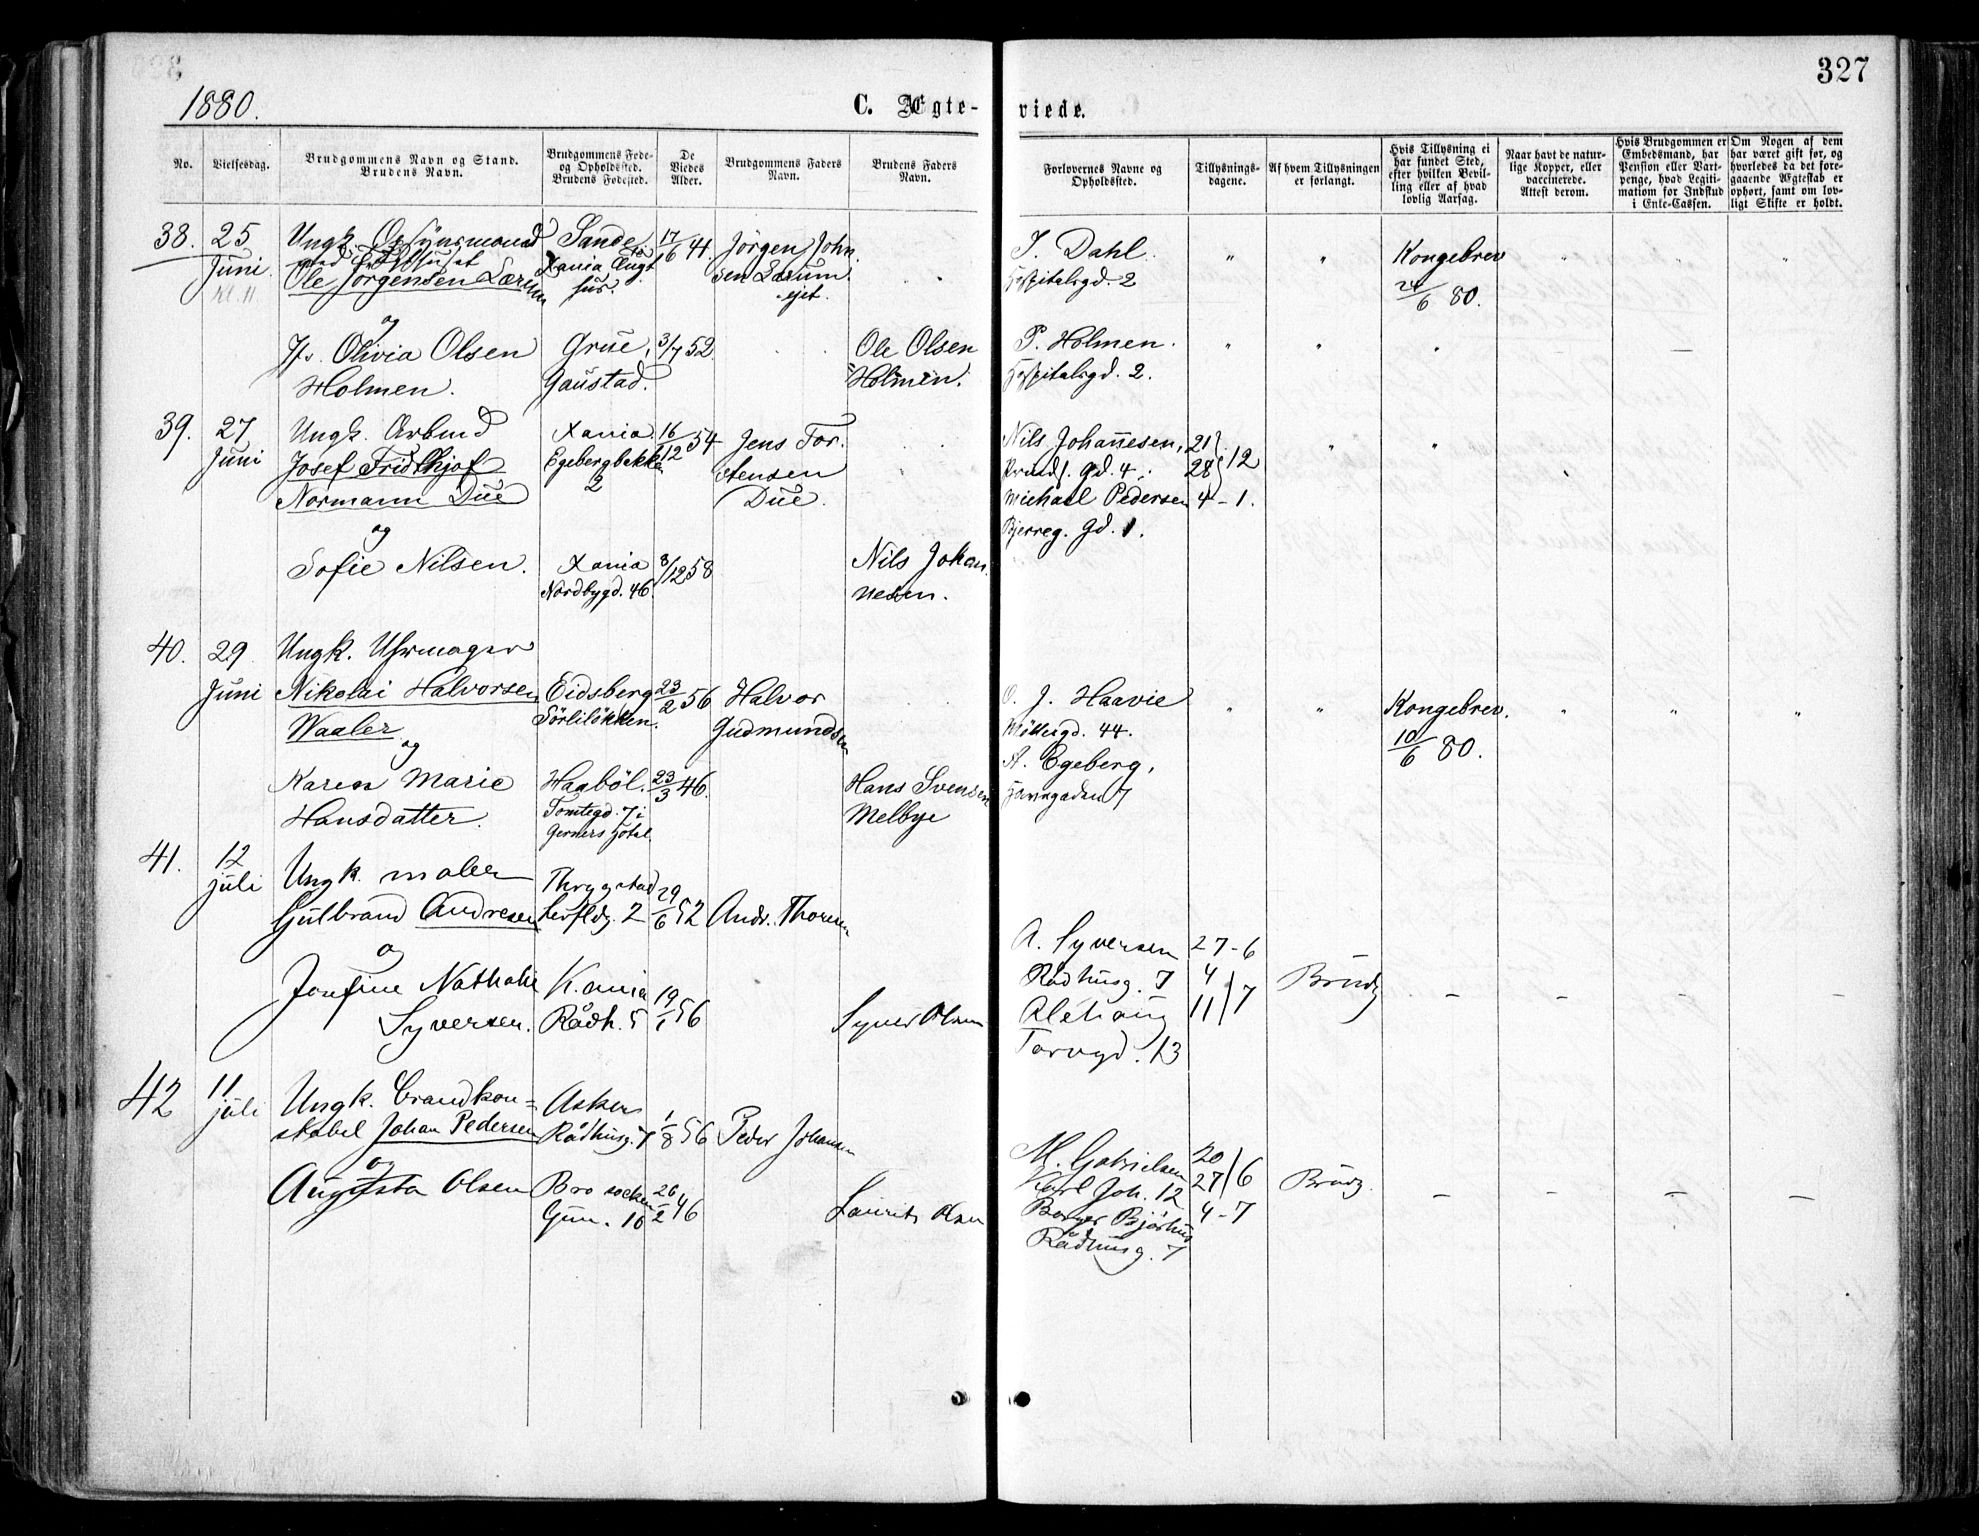 327
1880.
C. Ægte-
viede.
No.
Vielsesdag.
Brudgommens Navn og Stand.
Brudens Navn.
Brudgommens Føde-
og Opholdssted.
Brudens Fødested.
De
Viedes
Alder.
Brudgommens Faders
Navn.
Brudens Faders
Navn.
Forlovernes Navne og
Opholdssted.
Tillysnings-
dagene.
Af hvem Tillysningen
er forlangt.
Hvis Tillysning ei
har fundet Sted,
efter hvilken Bevil-
ling eller af hvad
lovlig Aarsag.
Naar havt de natur-
lige Kopper, eller
vaccinerede.
Attest derom.
Hvis Brudgommen er
Embedsmand, har
Pension eller Vart-
penge, hvad Legiti-
mation for Indskud
i Enke-Cassen.
Om Nogen af dem
har været gift før, og
hvorledes da det fore-
gaaende Ægteskab er
ophørt, samt om lov-
ligt Skifte er holdt.
38.
25
Juni
kl. 11
Ungk. Opsynsmand
ved
Ole Jörgensen Lærum
og
J. Olivia Olsen
Holmen.
Sande.
Xania
hus.
Grue,
Gaustad.
17/6 41.
3/7 52.
Jörgen John
sen Lærum
ejet.
Ole Olsen
Holmen.
J. Dahl.
Hospitalsgd. 2
P. Holmen.
Hospitalsgd. 2.
Kongebrev
24/6 80.
39.
27
Juni
Ungk. Arbmd
Josef Fridthjof
Normann Due
og
Sofie Nilsen.
Xania.
Egebergbakken
2
Xania
Nordbygd. 46.
16/12 54
8/12 58
Jens Tor-
stensen
Due.
Nils Johan
nesen.
Nils Johannesen,
gd. 4.
Michael Pedersen
Bjerreg. gd. 1.
21
28 } 12
4 - 1.
40.
29
Juni
Ungk. Uhrmager
Nikolai Halvorsen
Waaler
og
Karen Marie
Hansdatter.
Eidsberg
Sörliløkken.
Haaböl.
Tomtegd. 7 i
Gerners Hotel
23/2 56
23/3 46.
Halvor
Gudmundsen
Hans Svensen
Melbye
O. J. Haavie
Möllergd. 44.
A. Egeberg,
Havnegaden 7
Kongebrev.
10/6 80.
41.
12
juli
Ungk. maler
Gulbrand Andresen
og
Josefine Nathalie
Syversen.
Thrygstad
2
K.ania
Rådh. 5
29/6 52
19/1 56
Andr. Thoresen
Syver Olsen
A. Syversen
Rådhusg. 7
Torvgd. 13
27-6
4
11 } 7
Brudg
42
11
juli
Ungk. brandkon=
stabel Johan Pedersen
og
Augusta Olsen
Asker
Rådhusg. 7
Bro socken
Grün. 16
1/8 56
26/2 46
Peder Johansen
Laurits Olsen
M. Gabrielsen
Karl Joh. 12
Borger Bjørhus
Rådhusg. 7
20
27 } 6
4-7
Brudg.